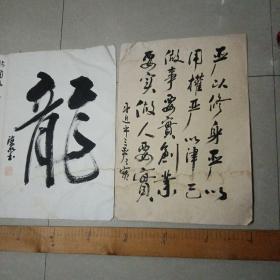 严以修身严以
用權严以律己
做事要實創業
要实做人要實
龍